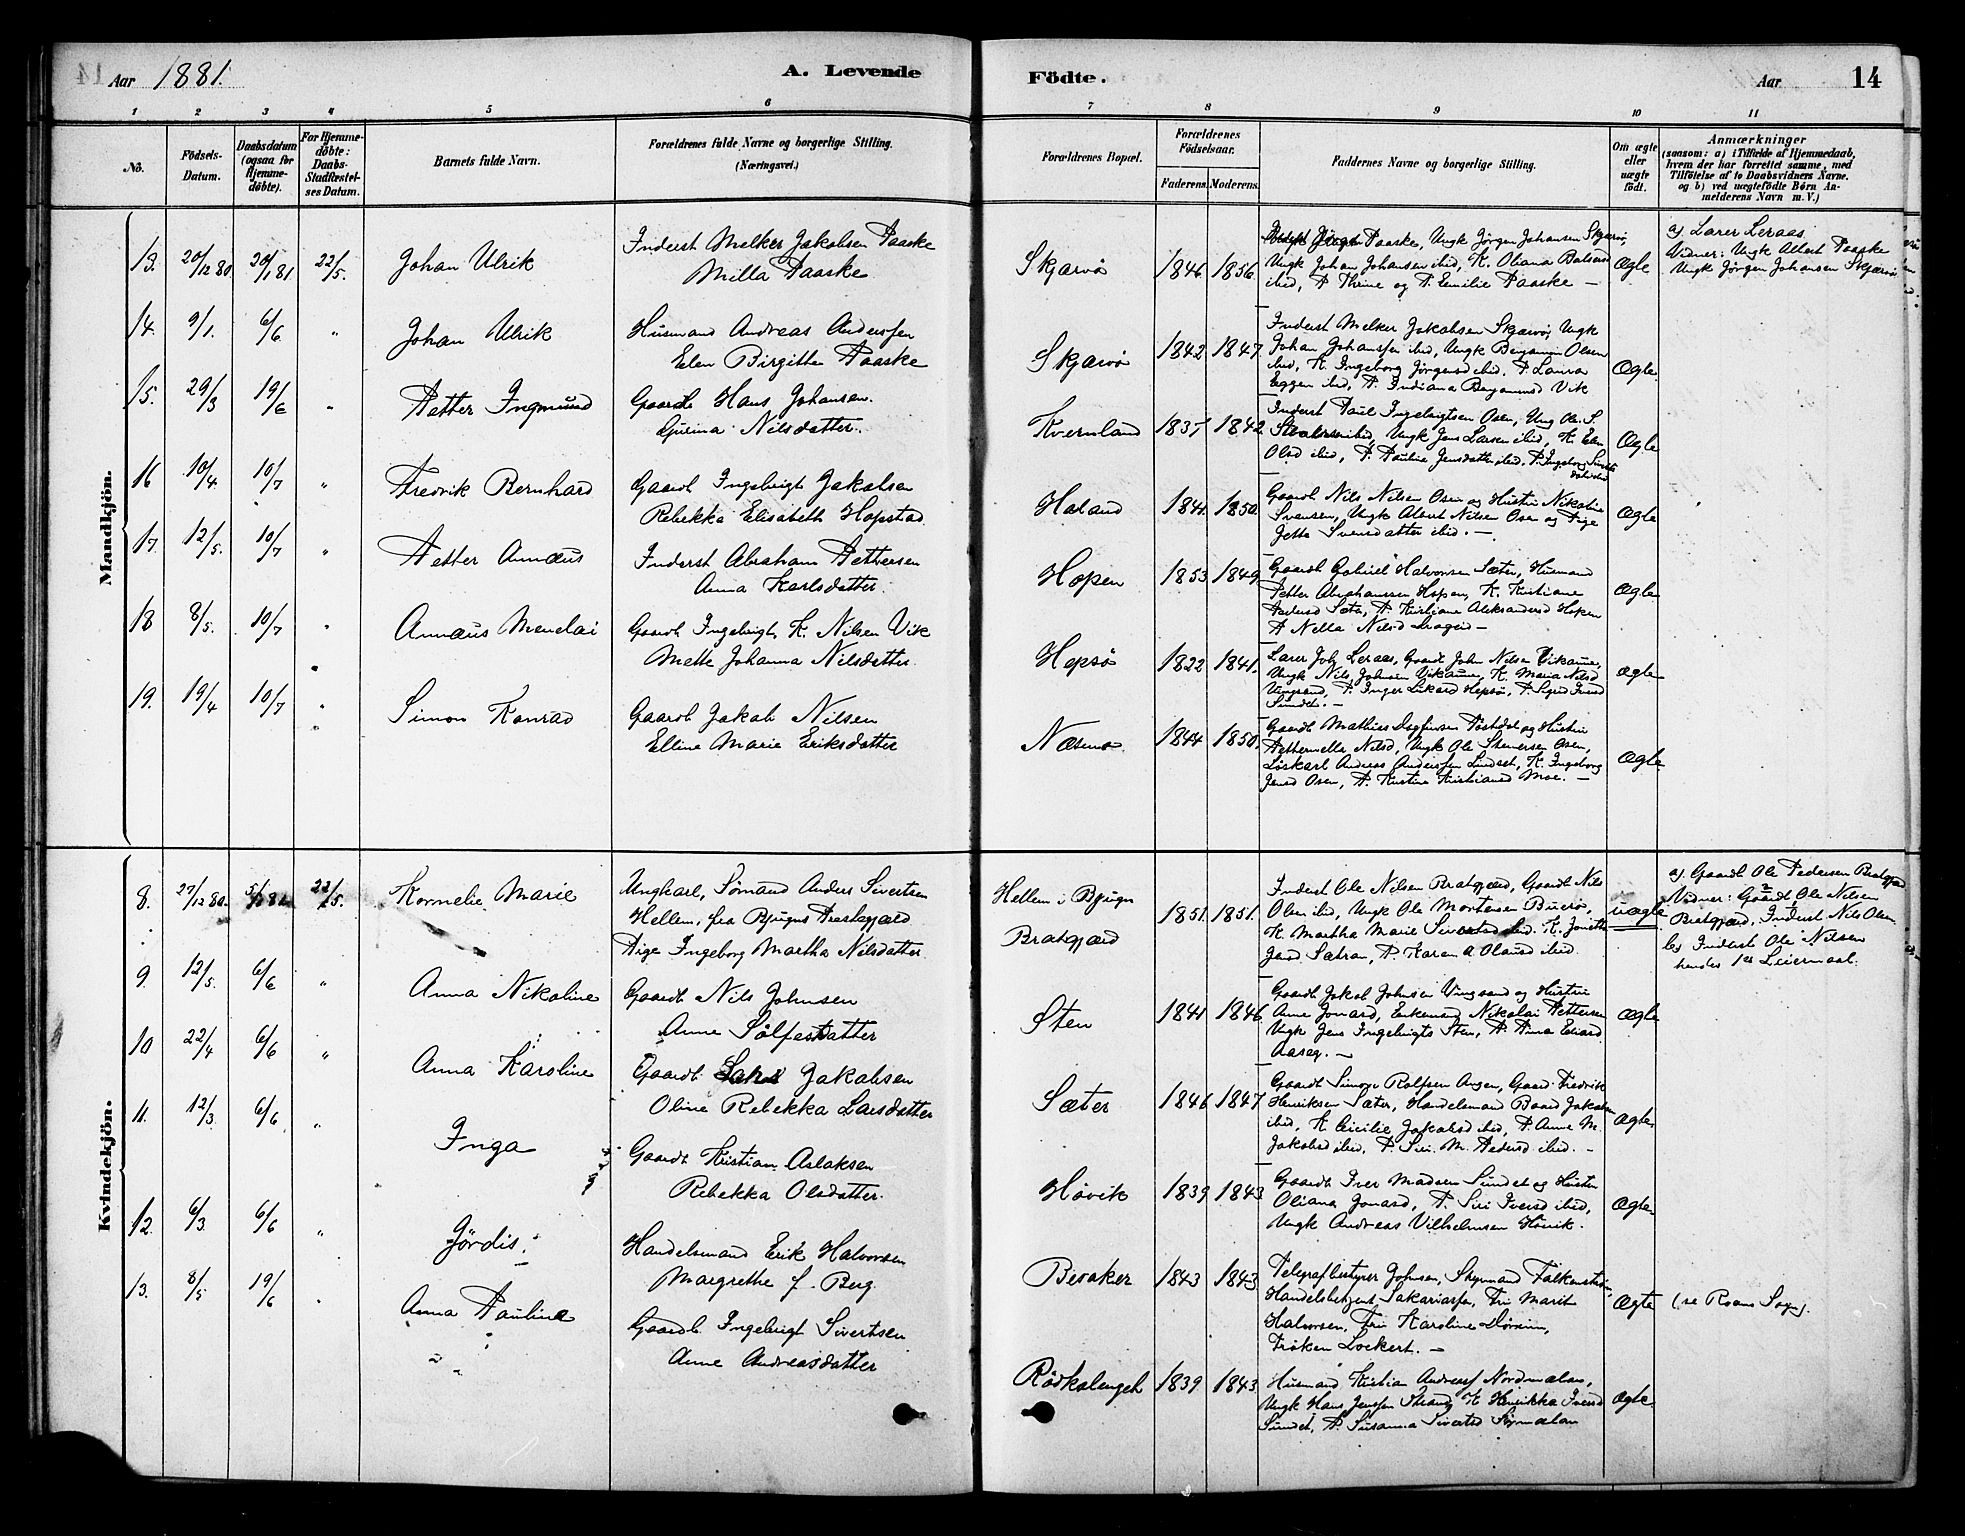 Aar 1881.
A. Levende
Födte.
Aar
14
1 2 3 4 5 6
7 8 9 10 11
No.
Födsels-Datum.
Daabsdatum (ogsaa for Hjemmedöbte).
For Hjemmedöbte: Daabs-Stadfæstelses Datum.
Barnets fulde Navn.
Forældrenes fulde Navne og borgerlige Stilling. (Næringsvei.)
Forældrenes Bopæl.
Forældrenes Födselsaar.
Faderens. Moderens.
Faddernes Navne og borgerlige Stilling.
Om ægte eller uægte födt.
Anmærkninger
(saasom: a) i Tilfælde af Hjemmedaab, hvem der har forrettet samme, med Tilföielse af to Daabsvidners Navne. og b) ved uægtefödte Börn Anmelderens Navn m. V.)
Mandkjön.
13. 20/12 80 20/1 81 22/5. Johan Ulrik
Inderst Melker Jakobsen Paaske
Milla Paaske
Skjærvø 1846 1856
Paaske, Ungk Jørgen Johansen Skjærvø,
Ungk Johan Johansen ibid, K. Oliana Balsersd
ibid, P Thrine og P. Emilie Paaske —
Ægte
a) Lærer Leraas
Vidner: Ungk Albert Paaske
Ungk Jørgen Johansen Skjærvø
14. 9/1. 6/6 " Johan Ulrik
Husmand Andreas Anderssen
Elen Birgitte Paaske
Skjærvø 1842 1847
Inderst Melker Jakobsen Skjærvø, Ungk
Johan Johanssen ibid, Ungk Benjamin Olsen
ibid, K. Ingeborg Jørgensd ibid, P. Laura
Eggen ibid, P. Indiana Benjamnsd Vik
Ægte
15. 29/3 19/6 " Petter Ingmund
Gaardb Hans Johansen.
Gurina Nilsdatter.
Kvernland 1835 1842
Inderst Paul Ingebrigtsen Osen, Ung Ole S.
ibid, Ungk Jens Larsen ibid, K. Elen
Olsd ibid, P. Pauline Jensdatter ibid, P. Ingeborg
Ægte
16 10/4 10/7 " Fredrik Bernhard
Gaardb Ingebrigt Jakobsen
Rebekka Elisabeth Hopstad
Haland 1841. 1850.
Gaardb Nils Nilsen Osen og Hustru Nikoline
Svensen, Ungk Albert Nilsen Osen og Pige
Jette Svensdatter ibid. —
Ægte
17. 12/5. 10/7 " Petter Annæus
Inderst Abraham Pettersen
Anna Karlsdatter.
Hopen 1853 1849
Gaardb Gabriel Halvorsen Sæter, Husmand
Petter Abrahamsen Hopen, K. Kristiane
Pedersd Sæter, P. Kristiane Aleksandersd Hopen
P Nella Nilsd —
Ægte
18 8/5. 10/7 " Annæus Mendai
Gaardb Ingebrigt K. Nilsen Vik
Mette Johanna Nilsdatter.
Hopsø 1822 1841.
Lærer Joh. Leraas, Gaardb John Nilsen Vikaune,
Ungk Nils Johnsen Vikaune, K. Maria Nilsd
Vingsand, P. Inger Hopsø, P. Sigrid Iversd
Sundet. —
Ægte
19. 19/4 10/7 " Simon Konrad
Gaardb Jakob Nilsen
Elline Marie Eriksdatter
Næsmo. 1844 1850.
Gaardb Mathias og Hustru
Pethernelle Nilsd, Ungk Ole Stenersen Osen,
Løskarl Andreas Anderssen Lindset, K. Ingeborg
Jensd Osen, P. Kristine Kristiansd Moe. —
Ægte
Kvindekjön.
8. 27/12 80. 5/1 81. 22/5. Kornelie Marie
Ungkarl, Sømand Anders Sivertsen
Hellem, fra Bjugns Præstegjæld
Pige Ingeborg Martha Nilsdatter.
Hellem i Bjugn
Bratgjærd
1851. 1851.
Inderst Ole Nilsen Bratgjærd, Gaardb Nils
Olsen ibid, Ungk Ole Mortensen Buerø,
K. Martha Marie Sivertsd ibid. K. Jonette
Jensd Sætran, P. Karen A Olausd ibid.
uægte
a) Gaardb Ole Pedersen Bratgjærd
Vidner: Gaardb Ole Nilsen
Bratgjærd, Inderst Nils Olsen
b) Inderst Ole Nilsen
hendes 1ste Leiermaal.
9. 12/5. 6/6 " Anna Nikoline
Gaardb Nils Johnsen
Anne Sølfestdatter
Sten 1841 1846
Gaardb Jakob Johnsen Vingsand og Hustru
Anne Jonasd, Enkemand Nikolai Pettersen
Ungk Jens Ingebrigts Sten, P Anna Eliasd
Aaseg. —
Ægte
10 22/4 6/6 " Anna Karoline
Gaardb Lars Jakobsen
Oline Rebekka Larsdatter
Sæter 1846 1847
Gaardb Simon Rolfsen Angen, Gaardb Fredrik
Henriksen Sæter, Handelsmand Baard Jakobsen
ibid, K. Cicilie Jakobsd ibid, P. Anne M.
Jakobsd ibid, P. Siri M. Pedersd ibid. —
Ægte
11. 12/3. 6/6 " Inga
Gaardb Kristian Aslaksen
Rebekka Olsdatter.
Høvik 1839 1843
Gaardb Iver Madsen Sundet og Hustru
Oliana Jonasd, P. Siri Iversd ibid,
Ungk Andreas Vilhelmsen Høvik.
Ægte
12. 6/3. 6/6 " Gjördis.
Handelsmand Erik Halvorsen
Margrethe f. Berg.
Besaker 1843 1843
Telegrafbestyrer Johnsen, Styrmand Falkenstrøm,
Handelsbetjent Sakariassen, Fru Marit
Halvorsen, Fru Karoline
Frøken Lockert. —
Ægte
(se Roans Sogn).
13. 8/5 19/6 " Anna Pauline
Gaardb. Ingebrigt Sivertsen
Anne Andreasdatter
Rødkalenget 1839 1843
Husmand Kristian Andreass Nordmælan,
Ungk Hans Jenssen Strand, K Henrikka Iversd
Sundet, P. Susanna Sivertsd Sørmælan
Ægte